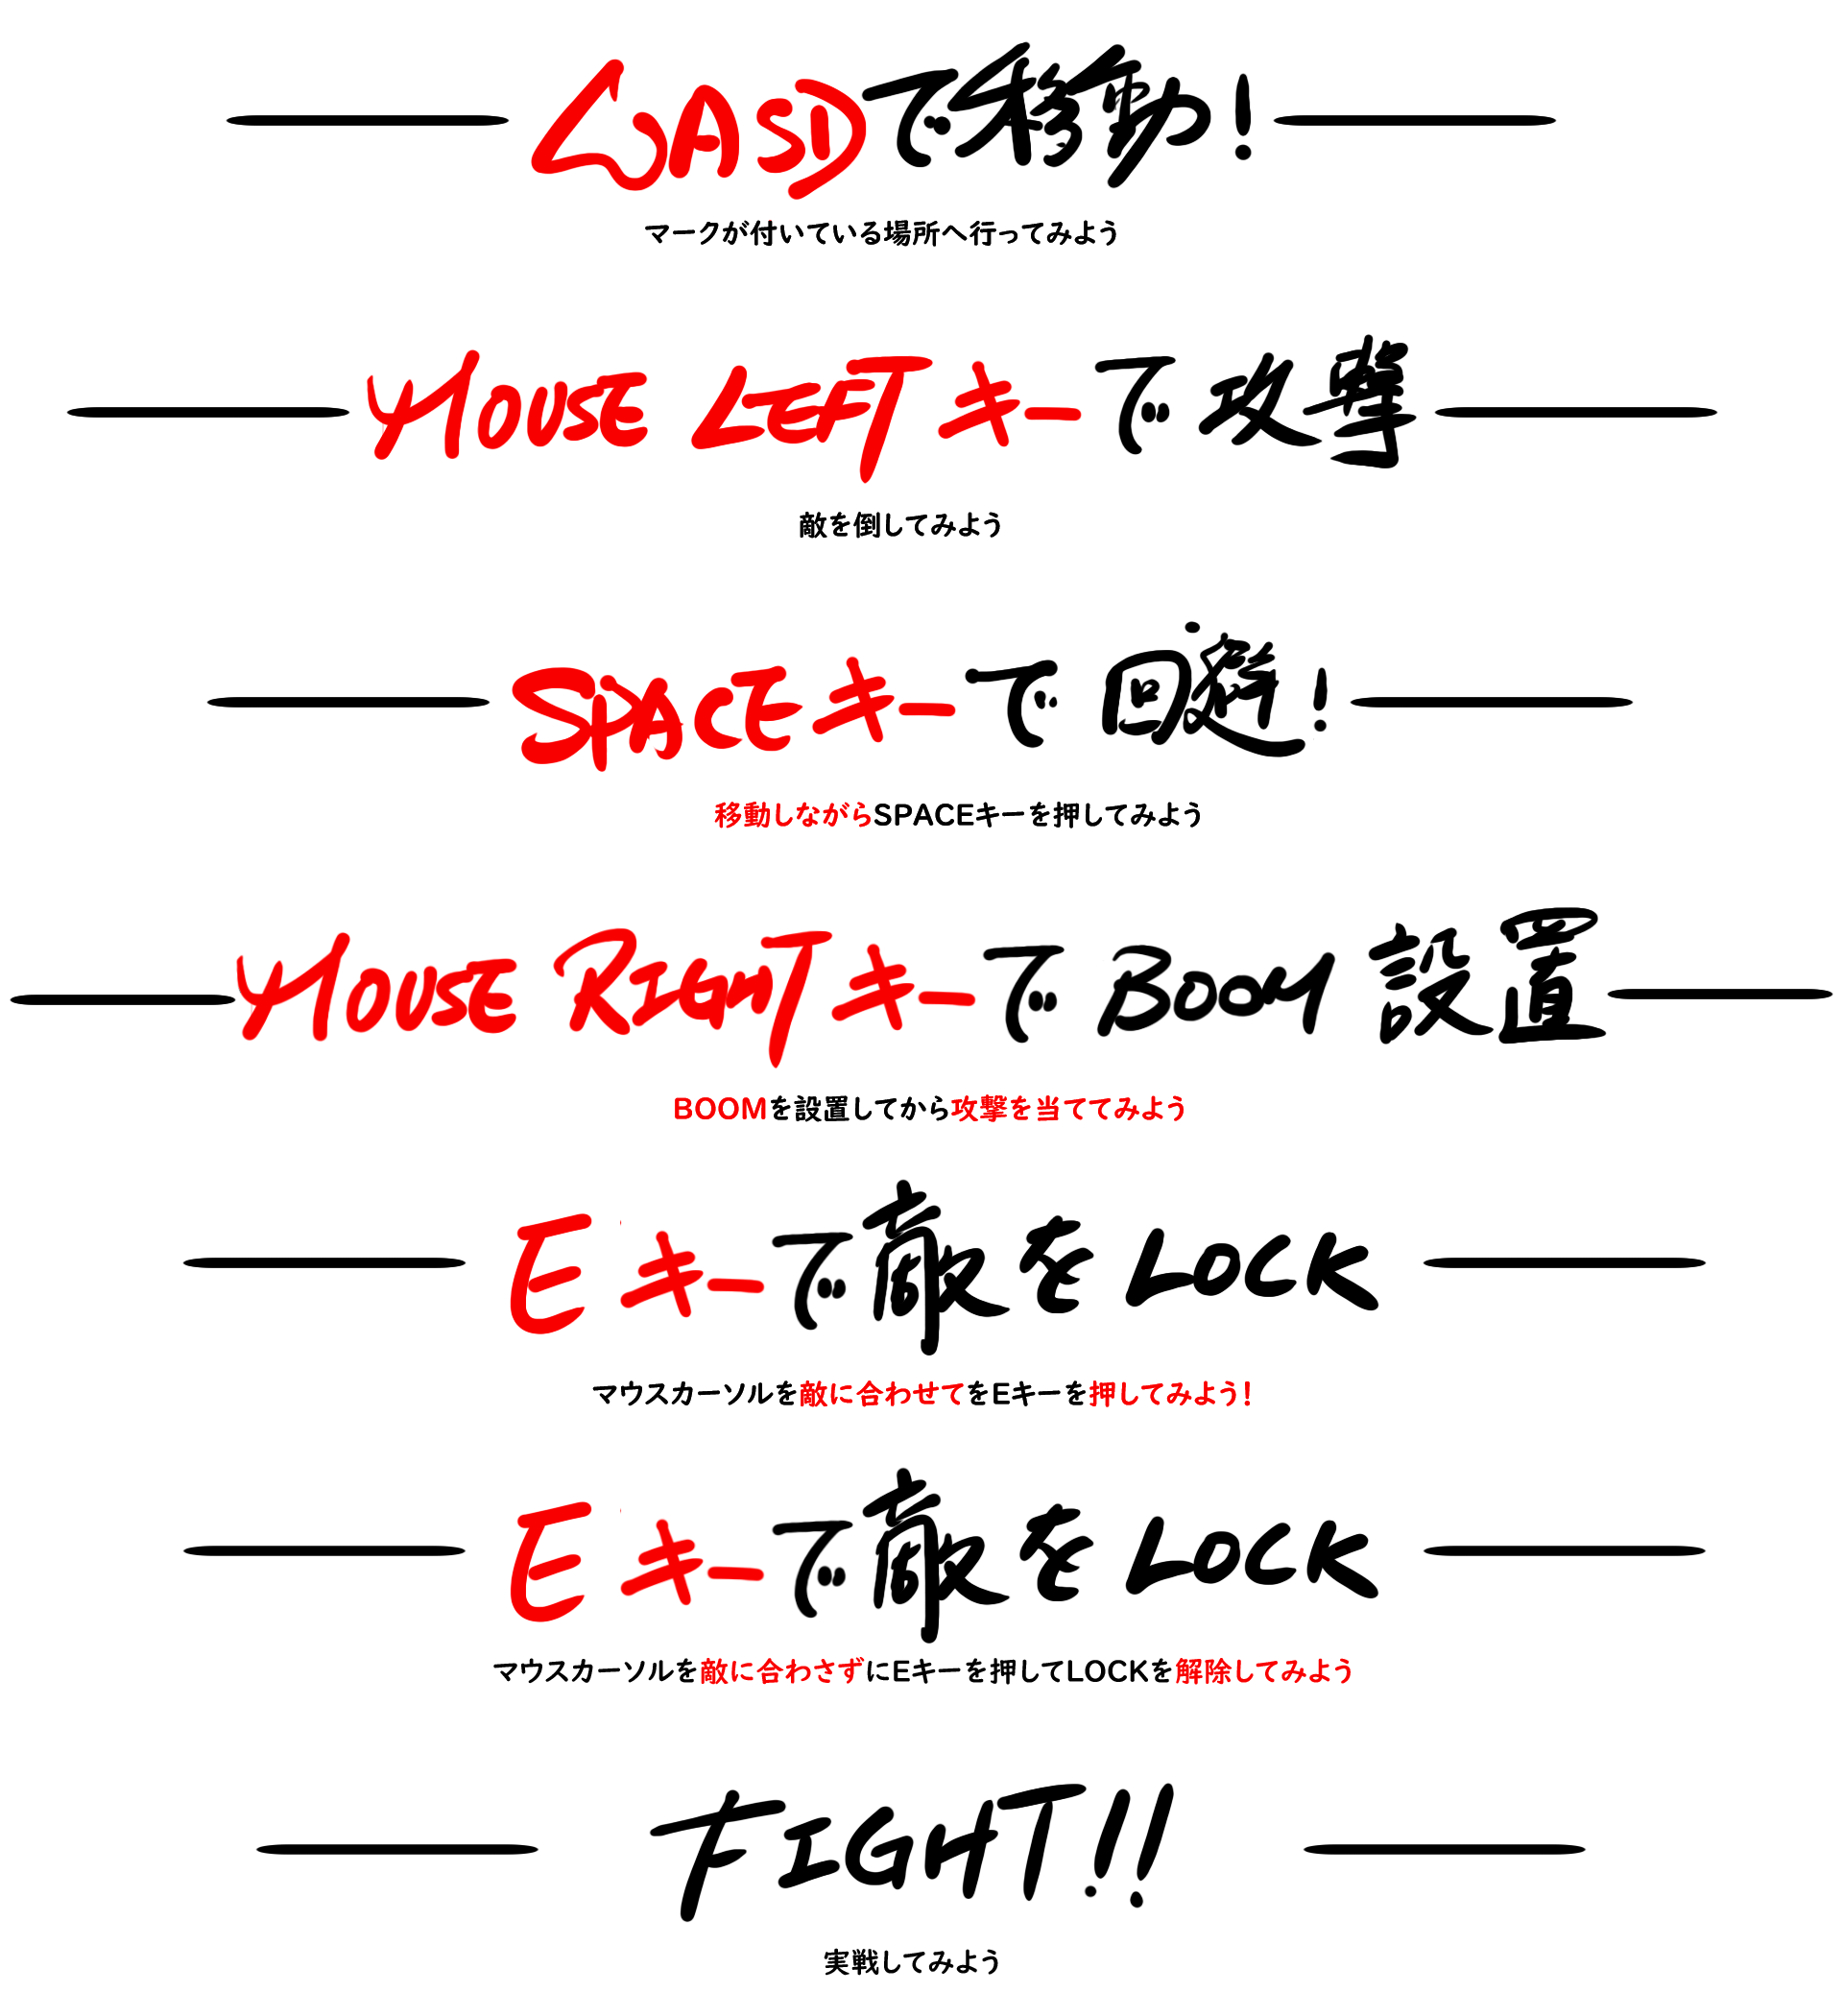 WASDで移動！
マークが付いている場所へ行ってみよう
MOUSE LEFTキーで攻撃
敵を倒してみよう
SPACEキーで回避！
移動しながらSPACEキーを押してみよう
MOUSE RIGHTキーでBOOM設置
BOOMを設置してから攻撃を当ててみよう
Eキーで敵をLOCK
マウスカーソルを敵に合わせてをEキーを押してみよう！
Eキーで敵をLOCK
マウスカーソルを敵に合わさずにEキーを押してLOCKを解除してみよう
FIGHT!!
実戦してみよう